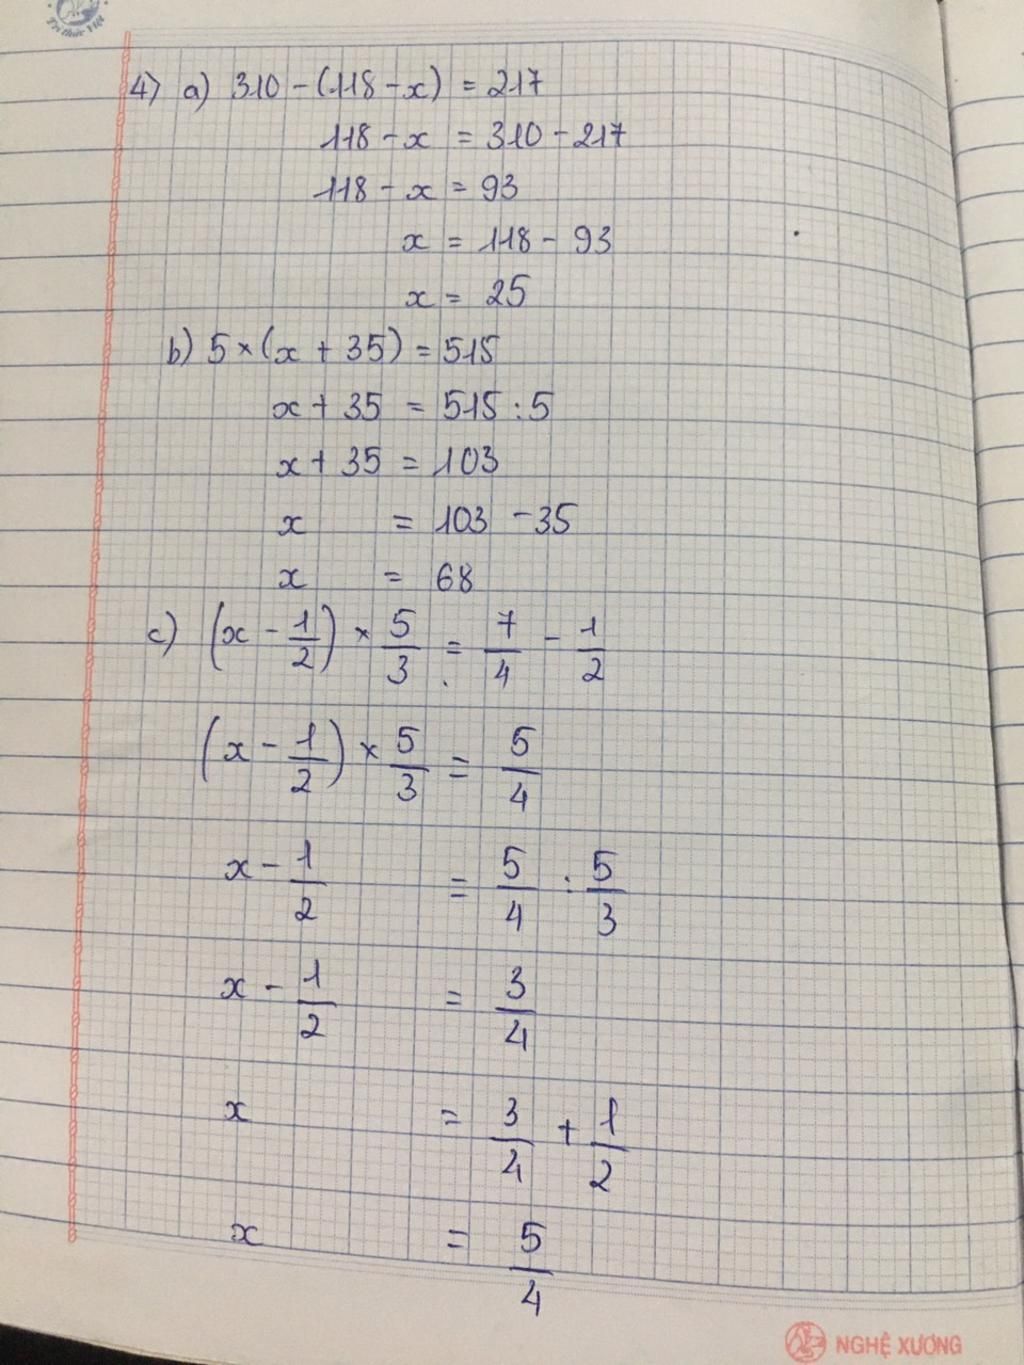 Trí thức Việt
4) a) 310 - (118 - x) = 217
118 - x = 310 - 217
118 - x = 93
x = 118 - 93
x = 25
b) 5 × (x + 35) = 515
x + 35 = 515 : 5
x + 35 = 103
x = 103 - 35
x = 68
c) (x - 1/2) × 5/3 = 7/4 - 1/2
(x - 1/2) × 5/3 = 5/4
x - 1/2 = 5/4 : 5/3
x - 1/2 = 3/4
x = 3/4 + 1/2
x = 5/4
NGHỆ XƯƠNG